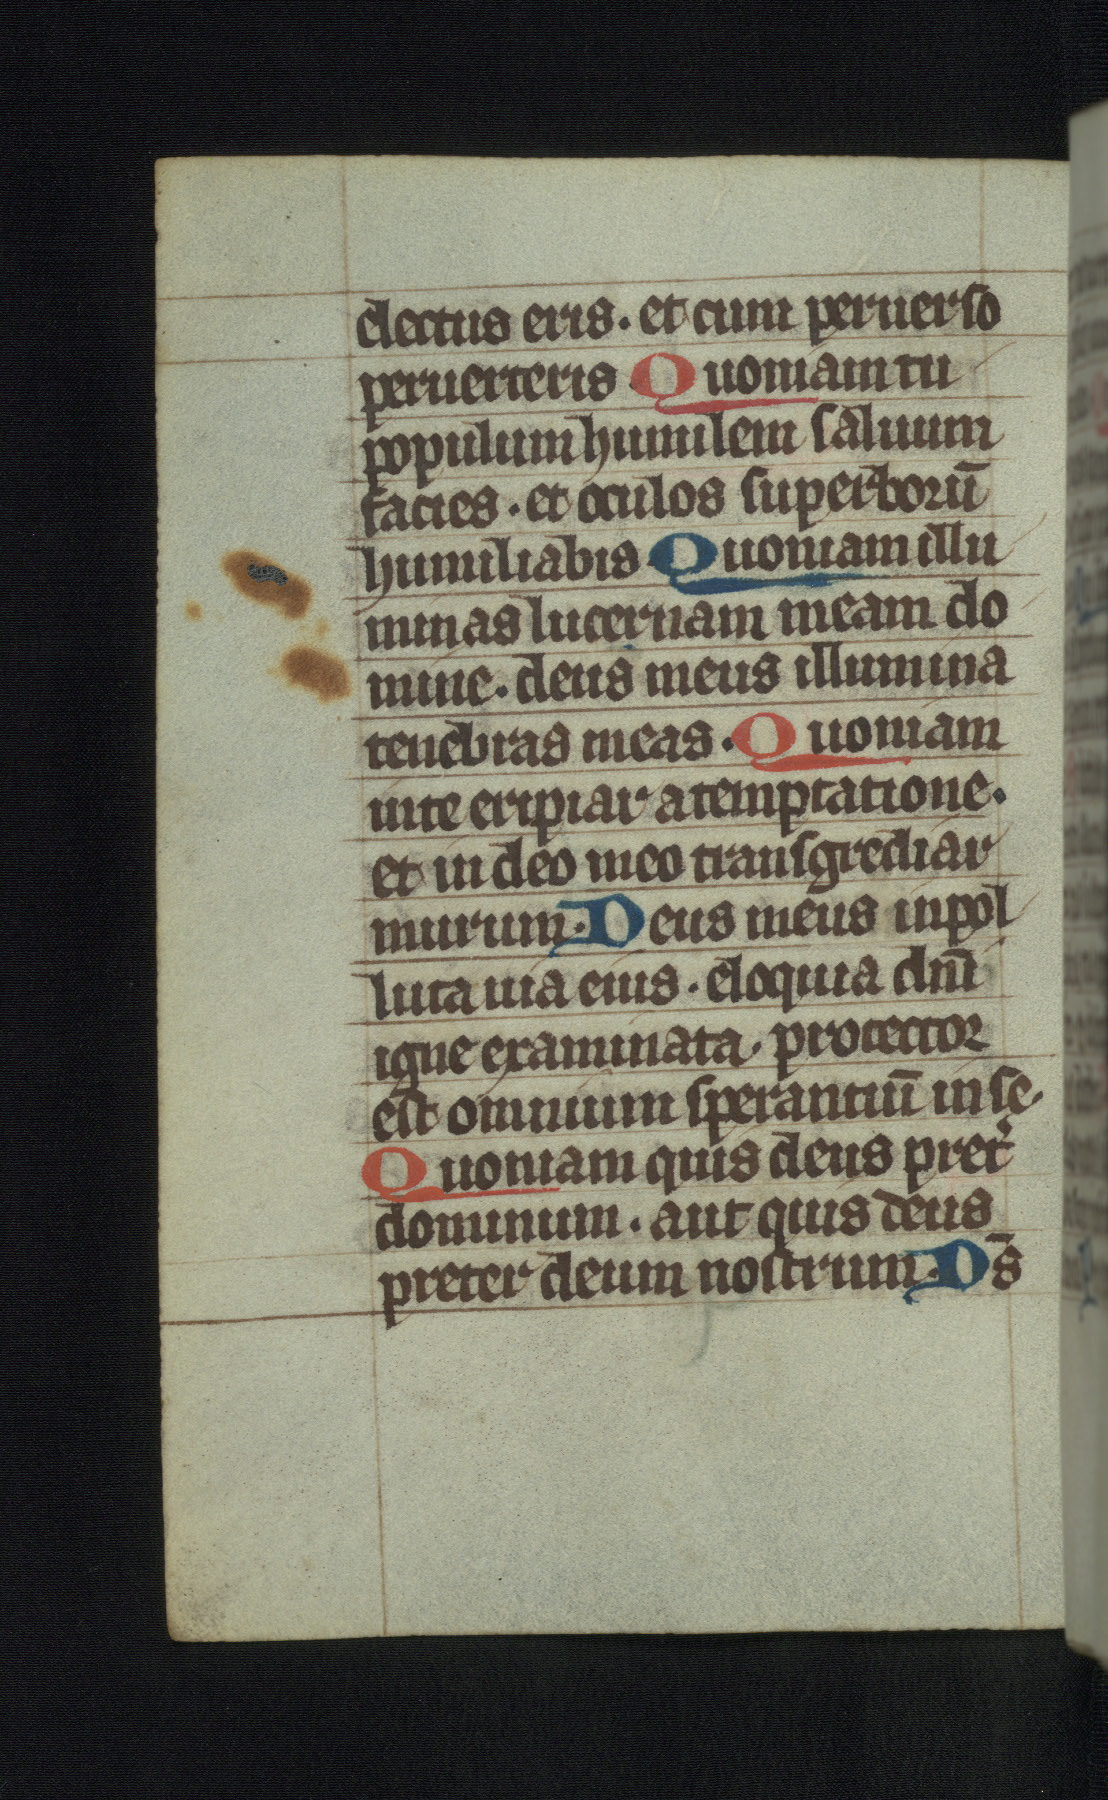 electus eris. et cum peruerso
peruerteris. Quoniam tu
populum humilem saluum
facies. et oculos superborū
humiliabis. Quoniam illu
minas lucernam meam do
mine. deus meus illumina
tenebras meas. Quoniam
in te eripiar a temptatione.
et in deo meo transgrediar
murum. Deus meus inpol
luta uia eius. eloquia dnī
igne examinata. protector
est omnium sperantiū in se.
Quoniam quis deus pret᷑
dominum. aut quis deus
preter deum nostrum. Ds̄